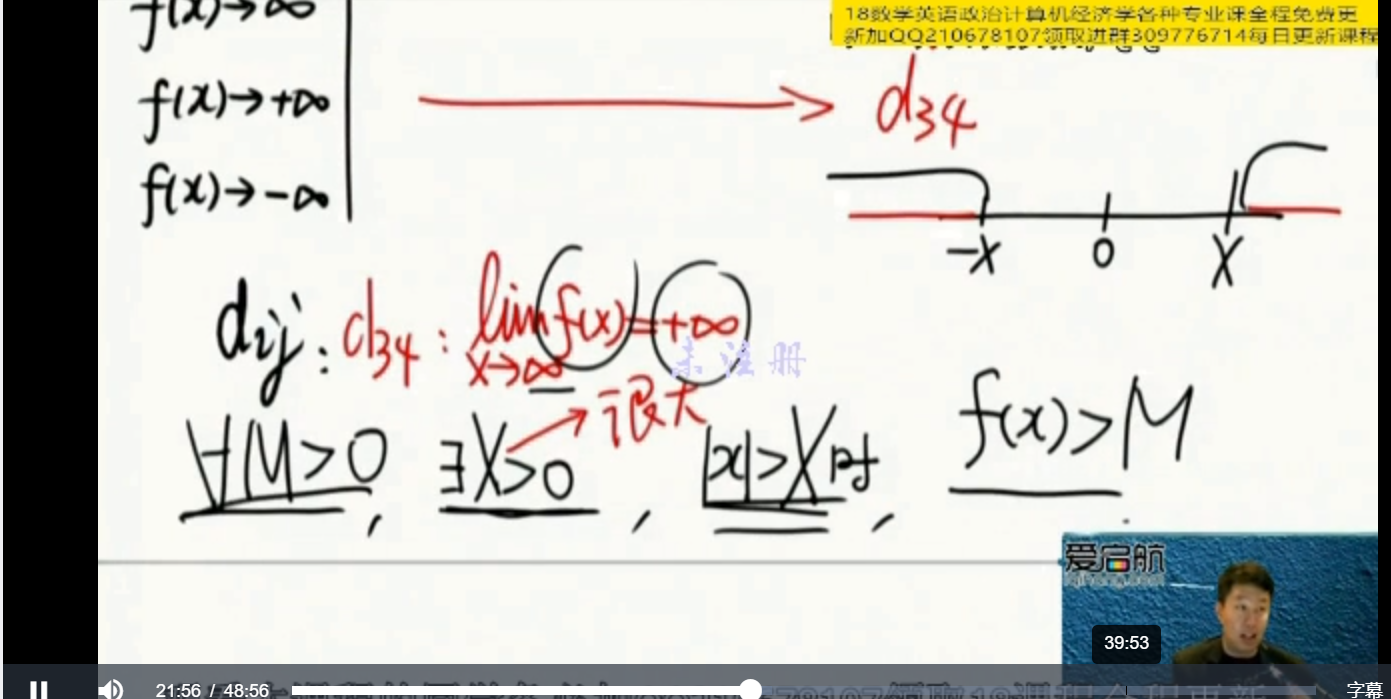 f(x)→∞
18数学英语政治计算机经济学各种专业课全程免费更
新加QQ210678107领取进群309776714每日更新课程
f(x)→+∞
d34
f(x)→-∞
-X 0 X
dij: d34: lim f(x)=+∞
x→∞
未注册
很大
∀M>0, ∃X>0, |x|>X时, f(x)>M.
爱启航
39:53
21:56 / 48:56
字幕